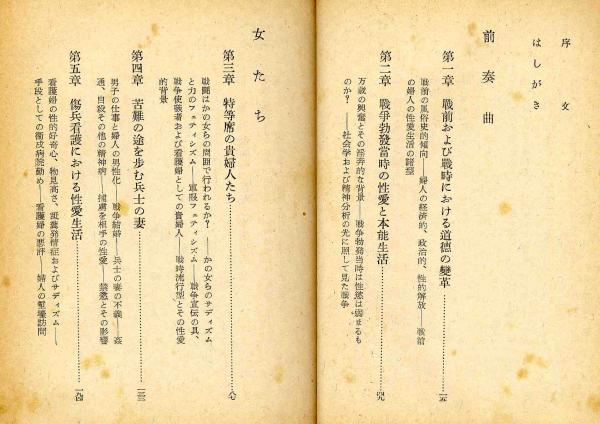 序文
はしがき
前奏曲
第一章 戰前および戰時における道德の變革………一五
戰前の風俗史的傾向――婦人の經濟的、政治的、性的解放――戰前
の婦人の性愛生活の諸型
第二章 戰爭勃發當時の性愛と本能生活………四九
万歳の興奮とその淫弄的な背景――戰爭勃發当時は性慾は弱まるも
のか？――社会学および精神分析の光に照して見た戰爭
女たち
第三章 特等席の貴婦人たち………八七
戰鬪はかの女らの問題で行われるか？――かの女らのサディズム
と力のフェティシズム――軍服フェティシズム――戰爭宣伝の具、
戰爭使嗾者および看護婦としての貴婦人――戰時流行型とその性愛
的背景
第四章 苦難の途を步む兵士の妻………一三三
男子の仕事と婦人の男性化――戰爭結婚――兵士の妻の不義――姦
通、自殺その他の精神病――捕虜を相手の性愛――禁慾とその影響
第五章 傷兵看護における性愛生活………一六四
看護婦の性的好奇心、物見高さ、糞発情症およびサディズム――
手段としての衞戍病院勤め――看護婦の悪評――婦人の塹壕訪問